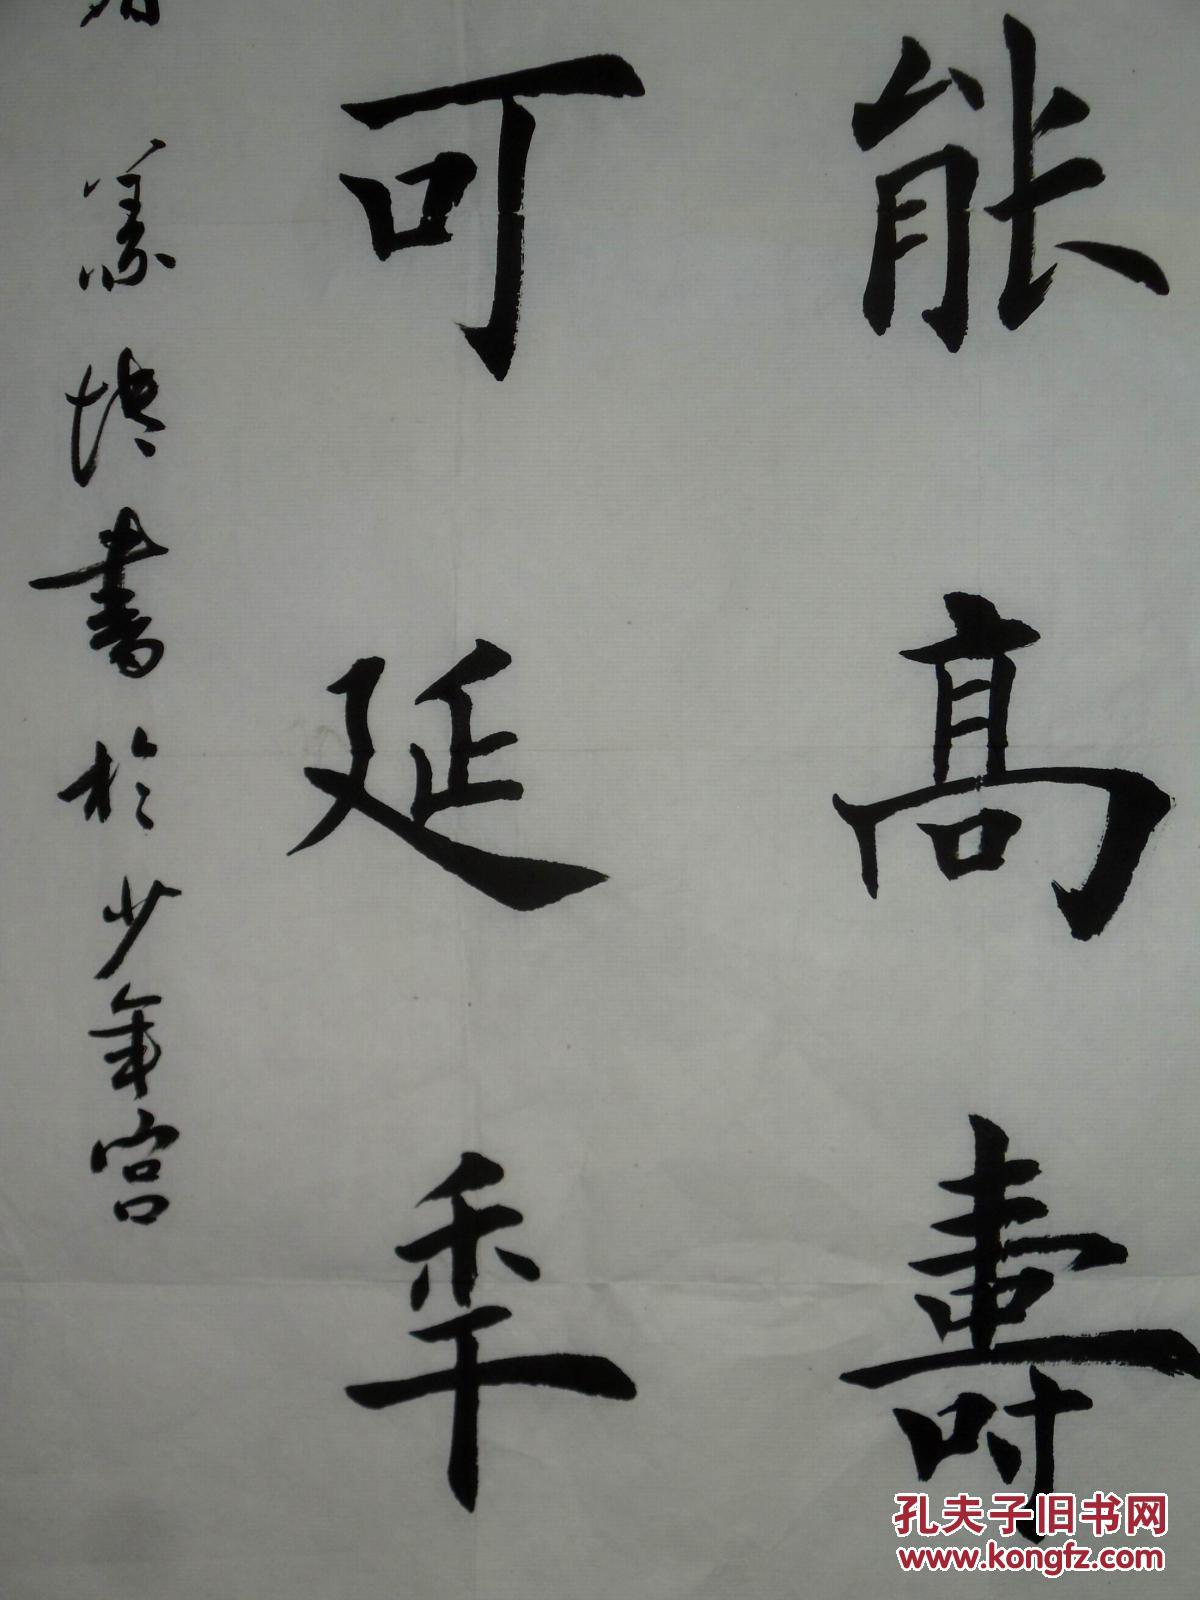 能高壽
可延秊
書於少年宮
孔夫子旧书网
www.kongfz.com